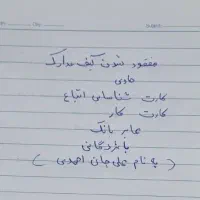 مفقود شدن کیف مدارک
حاوی
کارت شناسایی اتباع
کارت کار
عابر بانک
بازرگانی
( به نام علی جان احمدی )